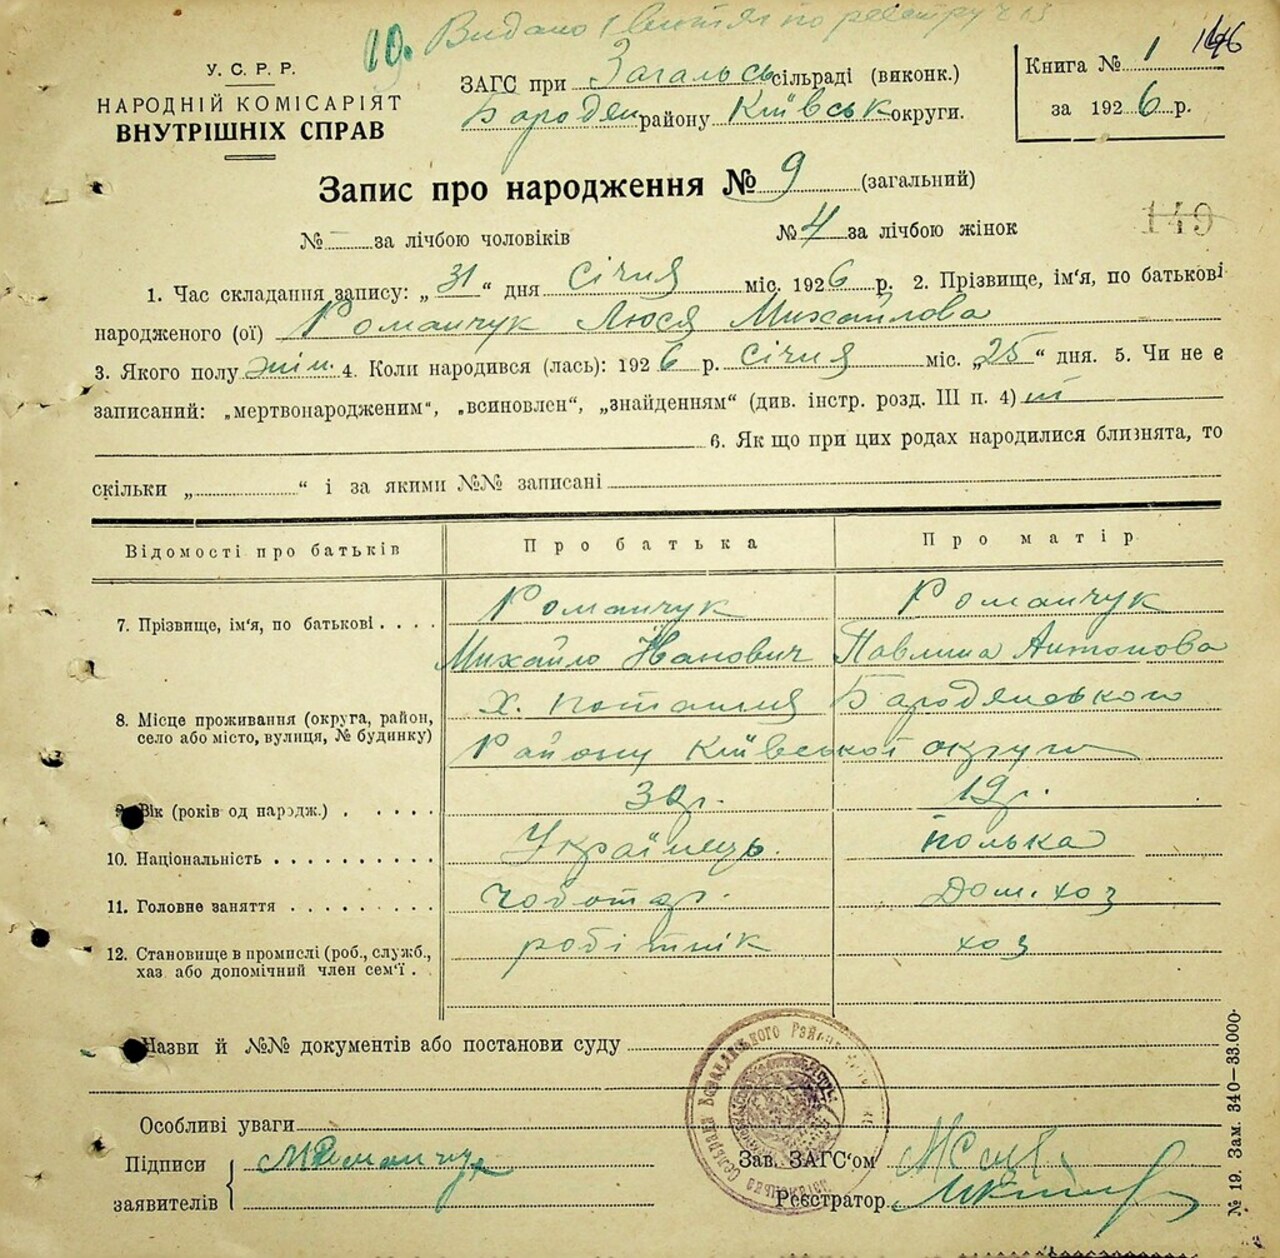 19. Видано 1 витяг по реєстру ч 13
У. С. Р. Р.
НАРОДНІЙ КОМІСАРІЯТ
ВНУТРІШНІХ СПРАВ
ЗАГС при Загальсь сільраді (виконк.)
Бародян району Київськ округи.
Книга № 1 146
за 1926 р.
Запис про народження № 9 (загальний)
149
№ – за лічбою чоловіків № 4 за лічбою жінок
1. Час складання запису: „31“ дня Січня міс. 1926 р. 2. Прізвище, ім'я, по батькові
народженого (ої) Романчук Люся Михайлова
3. Якого полу жін. 4. Коли народився (лась): 1926 р. Січня міс. „25“ дня. 5. Чи не є
записаний: „мертвонародженим“, „всиновлен“, „знайденням“ (див. інстр. розд. III п. 4) ні
6. Як що при цих родах народилися близнята, то
скільки „ “ і за якими №№ записані
Відомості про батьків Про батька Про матір
7. Прізвище, ім'я, по батькові . . . . Романчук Романчук
Михайло Іванович Павлина Антонова
8. Місце проживання (округа, район, село або місто, вулиця, № будинку) х. Поташня Бародянського
Району Київської округи
9. Вік (років од народж.) . . . . . 30 р. 19 р.
10. Національність . . . . . . . . . Українець. полька
11. Головне заняття . . . . . . . . . Чоботар. Дом. хоз
12. Становище в промислі (роб., служб., хаз або допомічний член сем'ї . . робітнік хоз
Назви й №№ документів або постанови суду
Особливі уваги
Підписи заявителів МРоманчук
Зав. ЗАГС'ом
Реєстратор
№ 19. Зам. 340—33.000·